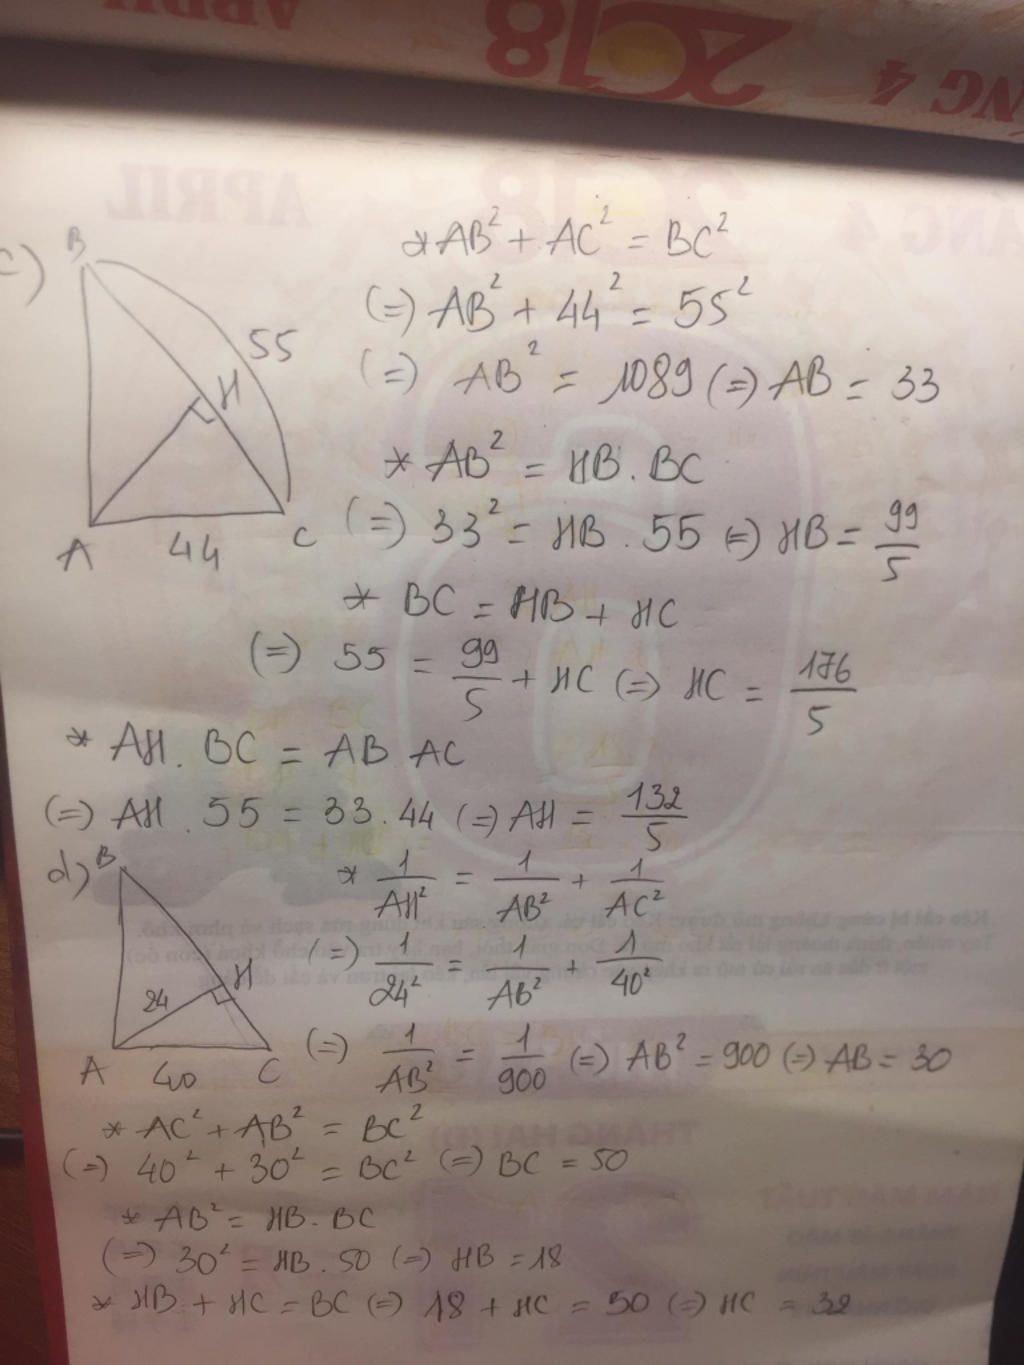 2018
NG 4
APRIL
2018
ANG 4
c)
B
55
H
A
44
C
* AB² + AC² = BC²
(=) AB² + 44² = 55²
(=) AB² = 1089 (=) AB = 33
* AB² = HB . BC
(=) 33² = HB . 55 (=) HB = 99/5
* BC = HB + HC
(=) 55 = 99/5 + HC (=) HC = 176/5
* AH . BC = AB AC
(=) AH . 55 = 33 . 44 (=) AH = 132/5
d)
B
H
24
A
40
C
* 1/AH² = 1/AB² + 1/AC²
(=) 1/24² = 1/AB² + 1/40²
(=) 1/AB² = 1/900 (=) AB² = 900 (=) AB = 30
* AC² + AB² = BC²
(=) 40² + 30² = BC² (=) BC = 50
* AB² = HB . BC
(=) 30² = HB . 50 (=) HB = 18
* HB + HC = BC (=) 18 + HC = 50 (=) HC = 32
THÁNG HAI (D)